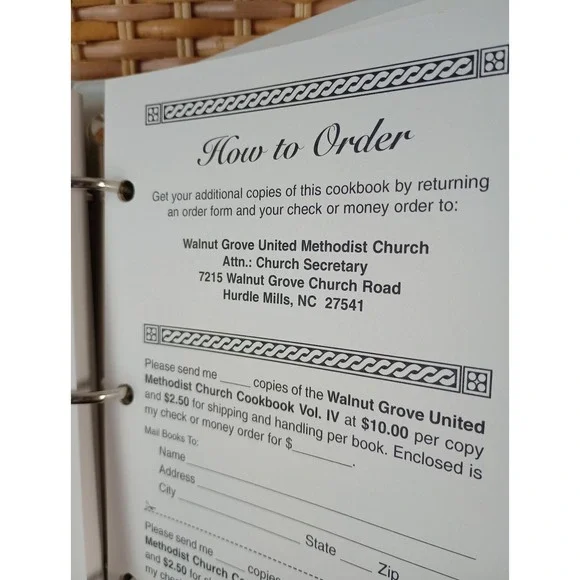 How to Order
Get your additional copies of this cookbook by returning
an order form and your check or money order to:
Walnut Grove United Methodist Church
Attn.: Church Secretary
7215 Walnut Grove Church Road
Hurdle Mills, NC 27541
Please send me _____ copies of the Walnut Grove United
Methodist Church Cookbook Vol. IV at $10.00 per copy
and $2.50 for shipping and handling per book. Enclosed is
my check or money order for $__________.
Mail Books To:
Name
Address
City
State
Zip
Please send me
copies
Methodist Church C
and $2.50 for s
my check or